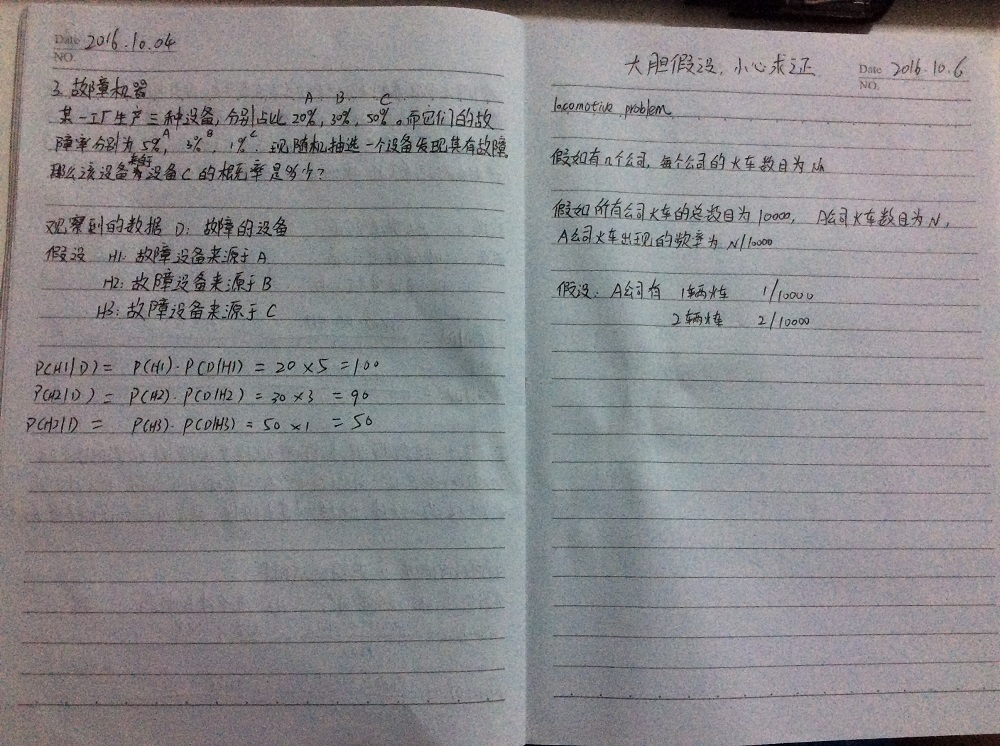 Date 2016.10.04
NO.
3. 故障机器
A B C
某一工厂生产三种设备,分别占比 20%, 30%, 50%。而它们的故
A B C
障率分别为 5%, 3%, 1%. 现随机抽选一个设备发现其有故障
来自
那么该设备为设备C的概率是多少?
观察到的数据 D: 故障的设备
假设 H1: 故障设备来源于A
H2: 故障设备来源于B
H3: 故障设备来源于C
P(H1|D) = P(H1)·P(D|H1) = 20 × 5 = 100
P(H2|D) = P(H2)·P(D|H2) = 30 × 3 = 90
P(H3|D) = P(H3)·P(D|H3) = 50 × 1 = 50
大胆假设,小心求证
Date 2016.10.6
NO.
locomotive problem
假如有n个公司,每个公司的火车数目为 Nn
假如所有公司火车的总数目为 10000, A公司火车数目为N,
A公司火车出现的概率为 N/10000
假设: A公司有 1辆火车 1/10000
2辆火车 2/10000